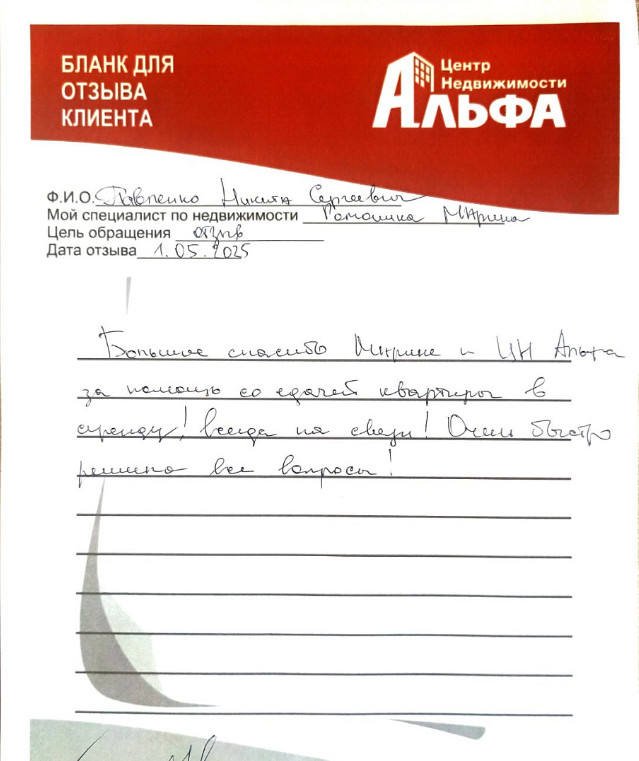 БЛАНК ДЛЯ
ОТЗЫВА
КЛИЕНТА
Центр
Недвижимости
АЛЬФА
Ф.И.О. Павленко Никита Сергеевич
Мой специалист по недвижимости Ромашка Марина
Цель обращения отзыв
Дата отзыва 1.05.2025
Большое спасибо Марине и ЦН Альфа
за помощь со сдачей квартиры в
аренду! всегда на связи! Очень быстро
решила все вопросы!